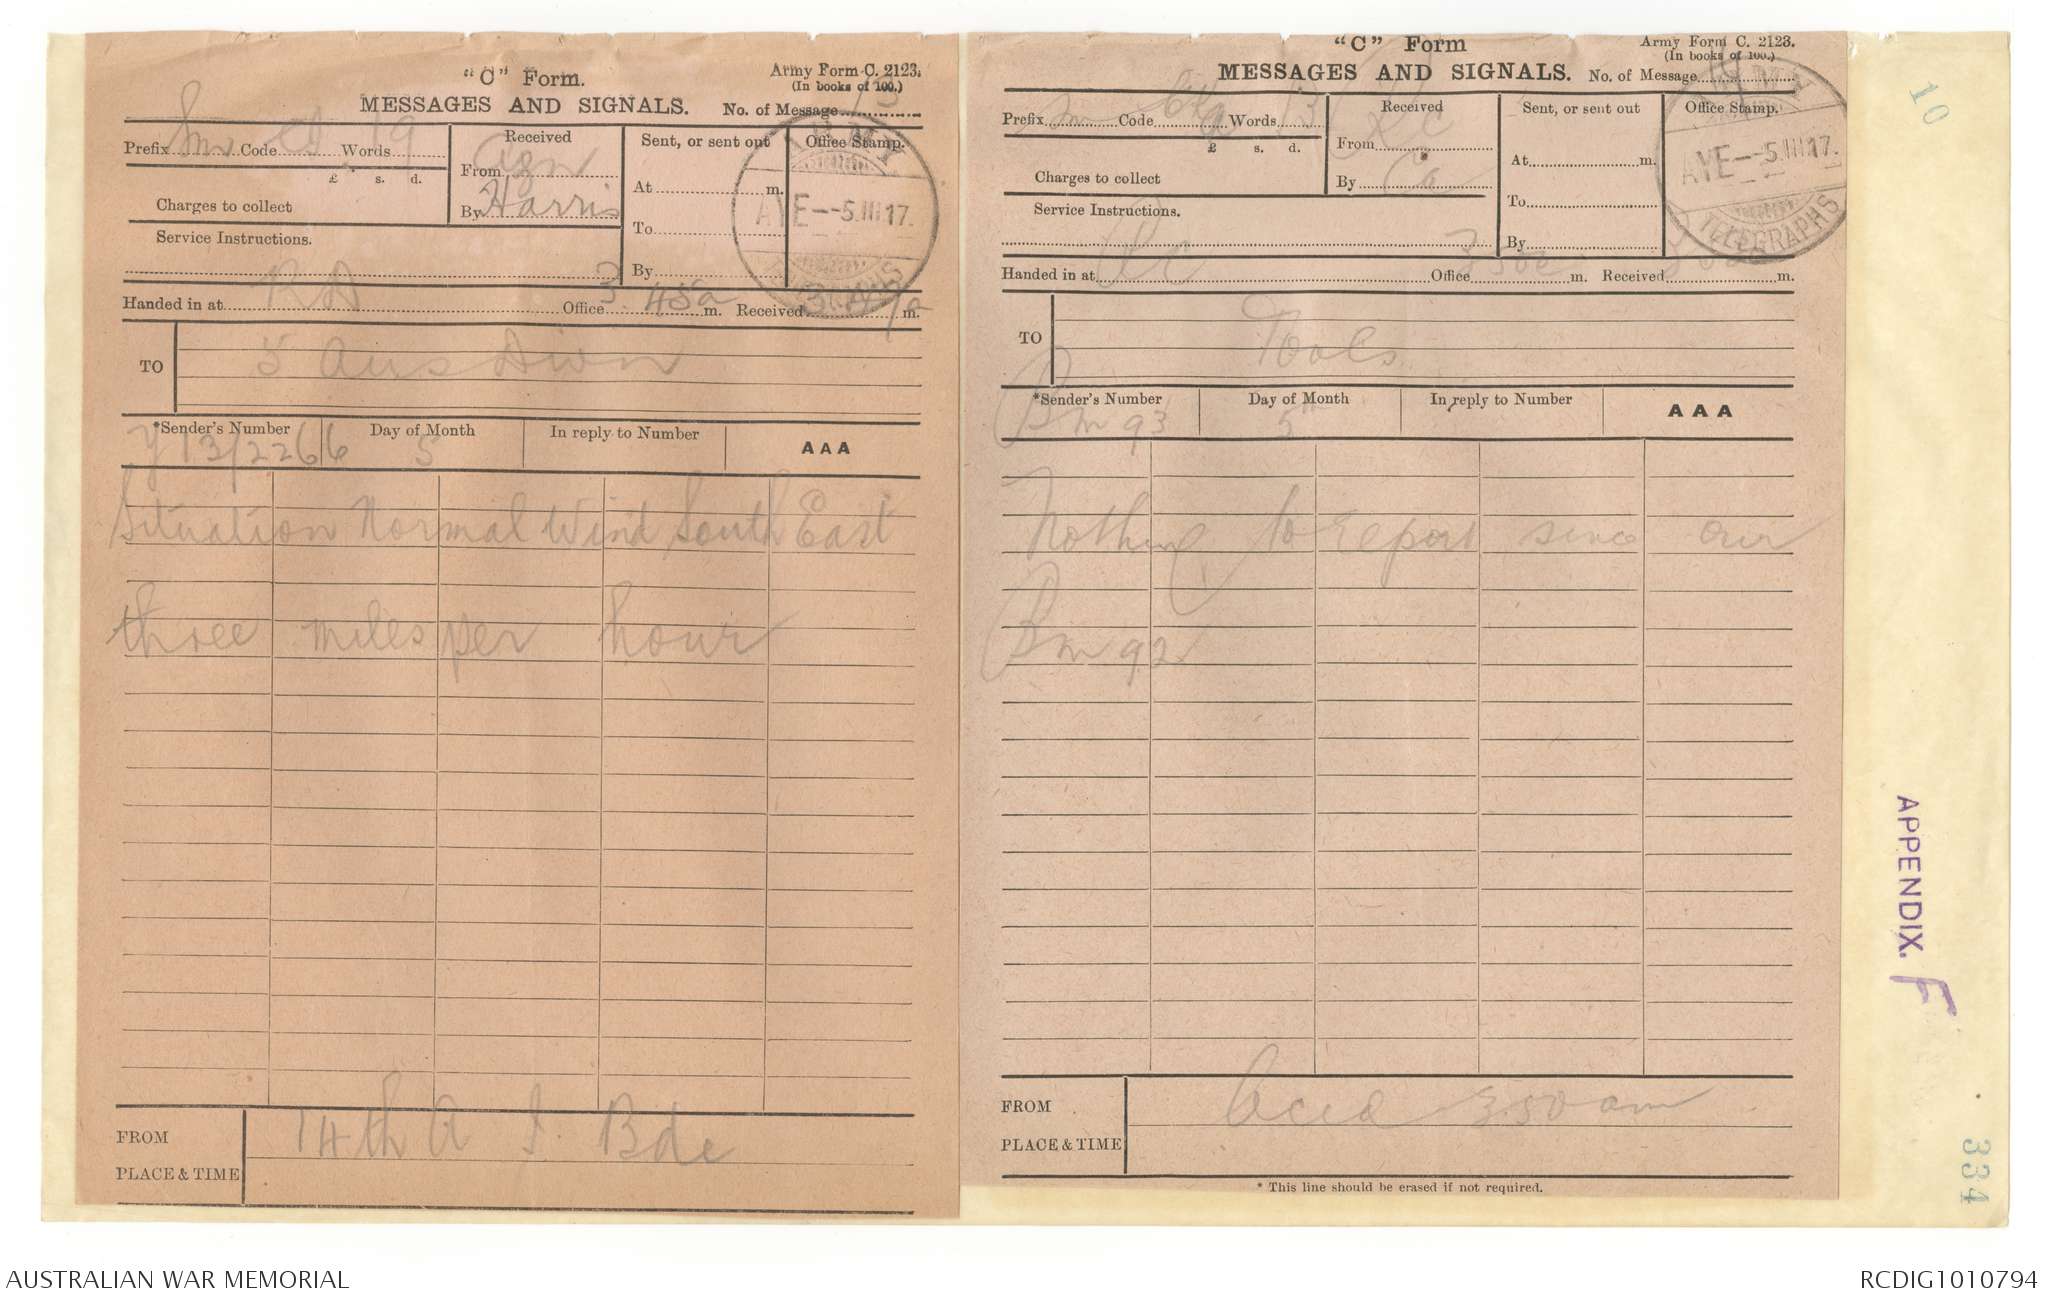 "C" Form.
Army Form C. 2123.
(In books of 100.)
MESSAGES AND SIGNALS.
No. of Message 13
Prefix Sm Code Words 19
£ s. d.
Charges to collect
Received
From
By Harris
Sent, or sent out
At m.
To
By
Office Stamp.
ARMY
AYE -5.III.17.
TELEGRAPHS
Service Instructions.
Handed in at Office 3.45a m. Received m.
TO
5 Aus Divn
*Sender's Number
Day of Month
In reply to Number
AAA
Y13/2266 5
Situation Normal Wind South East
three miles per hour
FROM
14th A I Bde
PLACE & TIME
"C" Form
Army Form C. 2123.
(In books of 100.)
MESSAGES AND SIGNALS.
No. of Message 14
Prefix Sm Code Words 13
£ s. d.
Charges to collect
Received
From
By
Sent, or sent out
At m.
To
By
Office Stamp.
ARMY
AYE -5.III.17.
TELEGRAPHS
Service Instructions.
Handed in at Office m. Received m.
TO
Tools
*Sender's Number
Day of Month
In reply to Number
AAA
Bm 93 5th
Nothing to report since our
Bm 92
FROM
Acid 3.50 am
PLACE & TIME
* This line should be erased if not required.
10
APPENDIX. F
334
AUSTRALIAN WAR MEMORIAL
RCDIG1010794